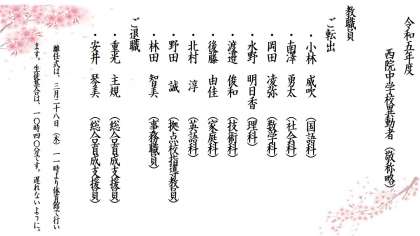 令和五年度
西院中学校異動者（敬称略）
教職員
ご転出
・小林　威吹（国語科）
・南澤　勇太（社会科）
・岡田　凌弥（数学科）
・水野　明日香（理科）
・渡邉　俊和（技術科）
・後藤　由佳（家庭科）
・北村　淳（英語科）
・野田　誠（拠点校指導教員）
・林田　智美（事務職員）
ご退職
・重光　主規（総合育成支援員）
・安井　琴美（総合育成支援員）
離任式は、三月二十八日（木）一一時より体育館で行い
ます。生徒集合は、一〇時四〇分です。遅れないように。